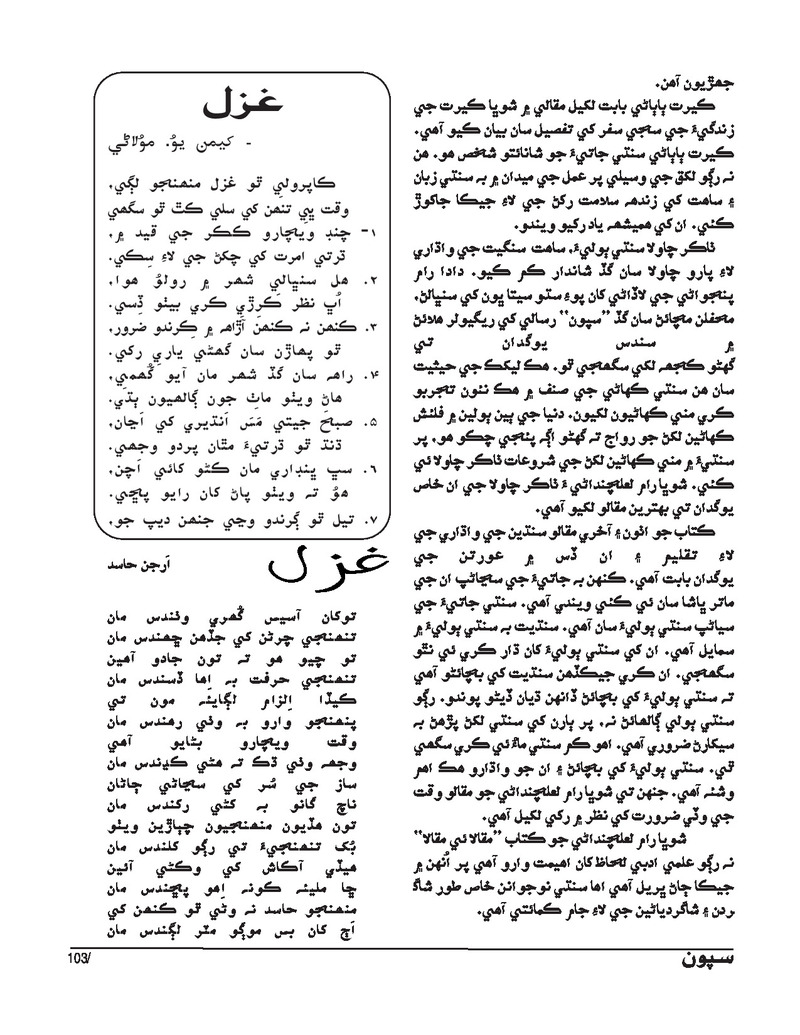 جھڙيون آهن.
ڪيرت ٻاٻاڻي بابت لکيل مقالي ۾ شوڀا ڪيرت جي
زندگيءَ جي سڄي سفر کي تفصيل سان بيان ڪيو آهي.
ڪيرت ٻاٻاڻي سنڌي جاتيءَ جو شانائتو شخص هو. هن
نہ رڳو لکڻ جي وسيلي پر عمل جي ميدان ۾ بہ سنڌي زبان
۽ ساهت کي زندہ سلامت رکڻ جي لاءِ جيڪا جاکوڙ
ڪئي. ان کي هميشہ ياد رکيو ويندو.
ٺاڪر چاولا سنڌي ٻوليءَ، ساهت سنگيت جي واڌاري
لاءِ پارو چاولا سان گڏ شاندار ڪم ڪيو. دادا رام
پنجواڻي جي لاڏاڻي کان پوءِ سٿو سيتا ڀون کي سنڀالڻ،
محفلن مچائڻ سان گڏ ”سپون“ رسالي کي ريگيولر هلائڻ
۾ سندس يوگدان تي
گهڻو ڪجهہ لکي سگهجي ٿو. هڪ ليکڪ جي حيثيت
سان هن سنڌي ڪهاڻي جي صنف ۾ هڪ نئون تجربو
ڪري مني ڪهاڻيون لکيون. دنيا جي ٻين ٻولين ۾ فلئش
ڪهاڻين لکڻ جو رواج تہ گهڻو اڳ پئجي چڪو هو. پر
سنڌيءَ ۾ مني ڪهاڻين لکڻ جي شروعات ٺاڪر چاولا ئي
ڪئي. شوڀا رام لعلچنداڻي ۽ ٺاڪر چاولا جي ان خاص
يوگدان تي بهترين مقالو لکيو آهي.
ڪتاب جو اٺون ۽ آخري مقالو سنڌين جي واڌاري جي
لاءِ تقليم ۽ ان ڏس ۾ عورتن جي
يوگدان بابت آهي. ڪنهن بہ جاتيءَ جي سڃاڻپ ان جي
ماتر ڀاشا سان ئي ڪئي ويندي آهي. سنڌي جاتيءَ جي
سياڻپ سنڌي ٻوليءَ سان آهي. سنڌيت بہ سنڌي ٻوليءَ ۾
سمايل آهي. ان کي سنڌي ٻوليءَ کان ڌار ڪري ئي نٿو
سگهجي. ان ڪري جيڪڏهن سنڌيت کي بچائڻو آهي
تہ سنڌي ٻوليءَ کي بچائڻ ڏانهن ڌيان ڏيڻو پوندو. رڳو
سنڌي ٻولي ڳالهائڻ نہ، پر ٻارن کي سنڌي لکڻ پڙهڻ بہ
سيکارڻ ضروري آهي. اهو ڪم سنڌي مائرئي ڪري سگهي
ٿي. سنڌي ٻوليءَ کي بچائڻ ۽ ان جو واڌارو هڪ اهم
وشيہ آهي. جنهن تي شوڀا رام لعلچنداڻي جو مقالو وقت
جي وڏي ضرورت کي نظر ۾ رکي لکيل آهي.
شوڀا رام لعلچنداڻي جو ڪتاب ”مقالا ئي مقالا“
نہ رڳو علمي ادبي لحاظ کان اهميت وارو آهي پر اُنهن ۾
جيڪا ڄاڻ ڀريل آهي اها سنڌي نوجوانن خاص طور شاگ
ردن ۽ شاگردياڻين جي لاءِ جام ڪمائتي آهي.
غزل
- کيمن يوُ. موُلاڻي
ڪاٻرولي ٿو غزل منهنجو لڳي،
وقت ڀي تنهن کي سلي ڪٿ ٿو سگهي
۱- چنڊ ويچارو ڪڪر جي قيد ۾،
ڌرتي امرت کي چکڻ جي لاءِ سِڪي.
۲. هل سنڀالي شهر ۾ رولوُ هوا،
اُڀ نظر ڪَرڙي ڪري بيٺو ڏِسي.
۳. ڪنهن نہ ڪنهن آڙاهہ ۾ ڪِرندو ضرور،
ٿو پهاڙن سان گهڻي ياري رکي.
۴. راهہ سان گڏ شهر مان آيو گُهمي،
هاڻ ويٺو ماٺ جون ڳالهيون ٻڌي.
۵. صبحَ جيتي مَسَ اَنڌيري کي اَڃان،
ڌنڌ ٿو ڌرتيءَ مٿان پردو وجهي.
۶. سڀ ڀنڊاري مان ڪڻو کائي اَچن،
هوُ تہ ويٺو پاڻ کان رايو پڇي.
۷. تيل ٿو ڳرندو وڃي جنهن ديپ جو،
غزل
اَرجن حاسد
توکان آسيس گُهري وٺندس مان
تنهنجي چرڻن کي جڏهن ڇهندس مان
تو چيو هو تہ تون جادو آهين
تنهنجي حرفت بہ اِها ڏسندس مان
ڪيڏا اِلزام لڳايئہ مون تي
پنهنجو وارو بہ وٺي رهندس مان
وقت ويچارو بڻايو آهي
وجهہ وٺي ڌڪ تہ هڻي ڪڍندس مان
ساز جي سُر کي سڃاڻي ڄاڻان
ناچ گانو بہ کڻي رکندس مان
تون هڏيون منهنجيون چٻاڙين ويٺو
بُک تنهنجيءَ تي رڳو کلندس مان
هيڏي آڪاش کي وڪڻي آئين
ڇا مليئہ ڪونہ اِهو پڇندس مان
منهنجو حاسد نہ وڻي ٿو ڪنهن کي
اَڄ کان بس موڳو مٽر لڳندس مان
103/
سپون